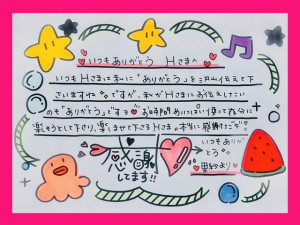 いつもありがとう Hさまへ
いつもHさまは私に「ありがとう」を沢山伝えて下
さいますね。ですが、私がHさまにお伝えしたい
のも「ありがとう」です お時間めいっぱい使って存分に
楽しもうとして下さり、楽しませて下さるHさま。本当に感謝
感謝
してます!!
いつもあり
がとう
より